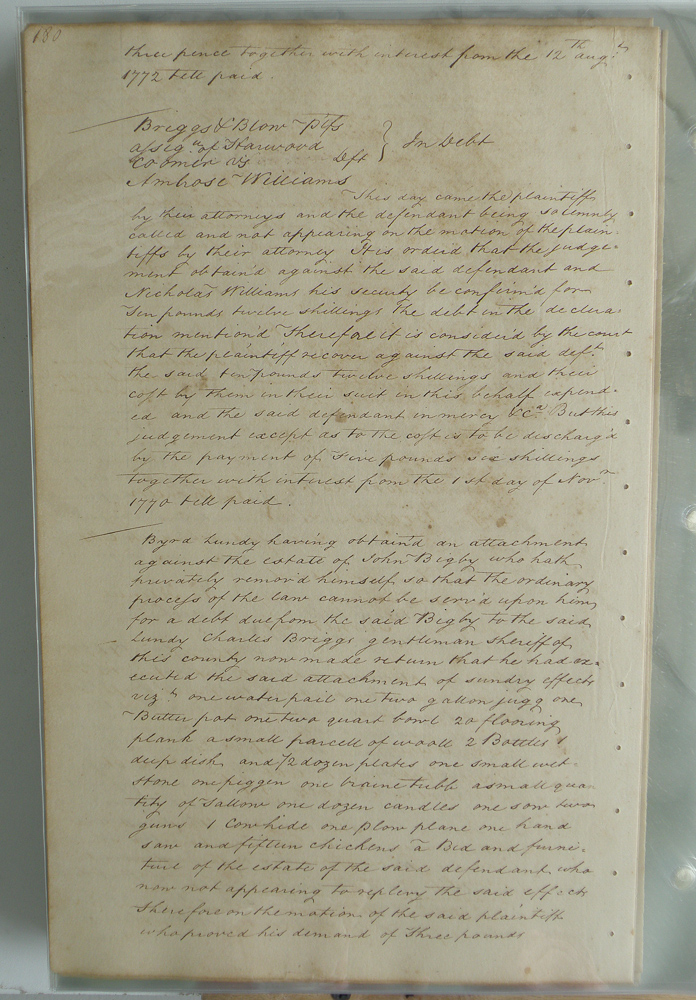 180
three pence together with interest from the 12th augt
1772 till paid.
Briggs & Blow plfs
assigns of Harwood
Coomer vs Deft } In Debt
Ambrose Williams
This day came the plaintiffs
by their attorneys and the defendant being solemnly
called and not appearing on the motion of the plain-
tiffs by their attorney It is orderd that the judge-
ment obtain'd against the said defendant and
Nicholas Williams his security be confirm'd for
Ten pounds twelve shillings the debt in the declara-
tion mention'd Therefore it is consider'd by the court
that the plaintiff recover against the said deft
the said ten pounds twelve shillings and their
cost by them in their suit in this behalf expend-
ed and the said defendant in mercy &ca But this
judgement except as to the cost is to be discharg'd
by the payment of Five pounds six shillings
together with interest from the 1st day of Novr
1770 till paid.
Byrd Lundy having obtain'd an attachment
against the estate of John Bigby who hath
privately remov'd himself so that the ordinary
process of the law cannot be serv'd upon him
for a debt due from the said Bigby to the said
Lundy Charles Briggs gentleman sheriff of
this county now made return that he had ex-
ecuted the said attachment of sundry effects
vizt one water pail one two gallon jugg one
Butter pot one two quart bowl 20 flooring
plank a small parcell of wooll 2 Bottles 1
deep dish and 1/2 dozen plates one small wet-
stone one piggen one tubb a small quan-
tity of Tallow one dozen candles one sow two
guns 1 Cow hide one plow plane one hand
saw and fifteen chickens a Bed and furni-
ture of the estate of the said defendant who
now not appearing to replevy the said effects
Therefore on the motion of the said plaintiff
who proved his demand of Three pounds